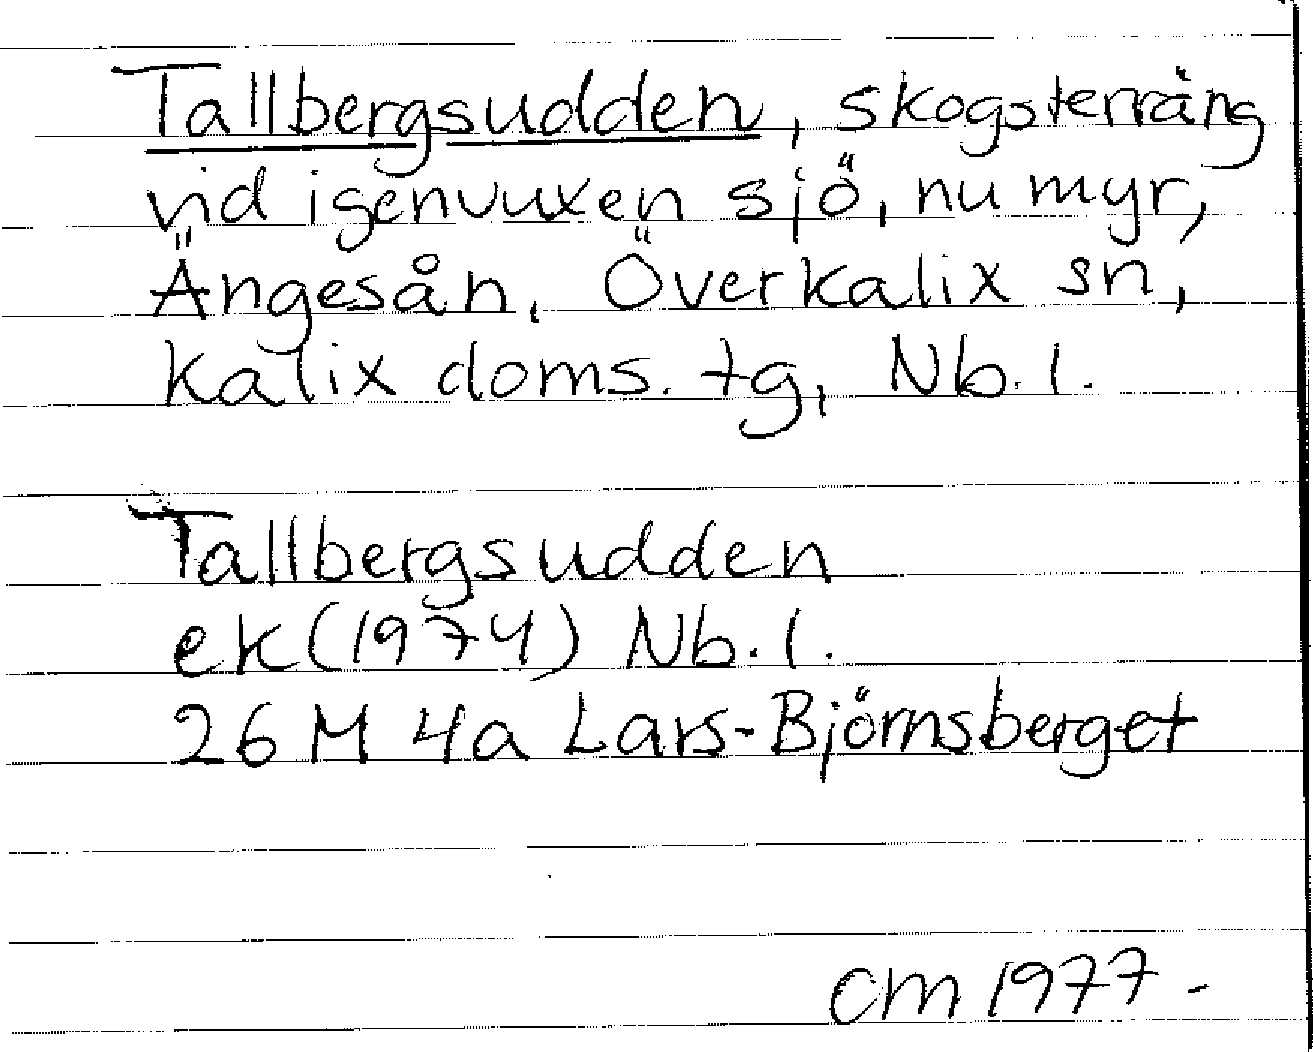 Tallbergsudden, skogsterräng
vid igenvuxen sjö, nu myr,
Ängesån, Överkalix sn,
Kalix doms. tg, Nb. l.
Tallbergsudden
ek (1974) Nb. l.
26 M 4a Lars-Björnsberget
CM 1977-